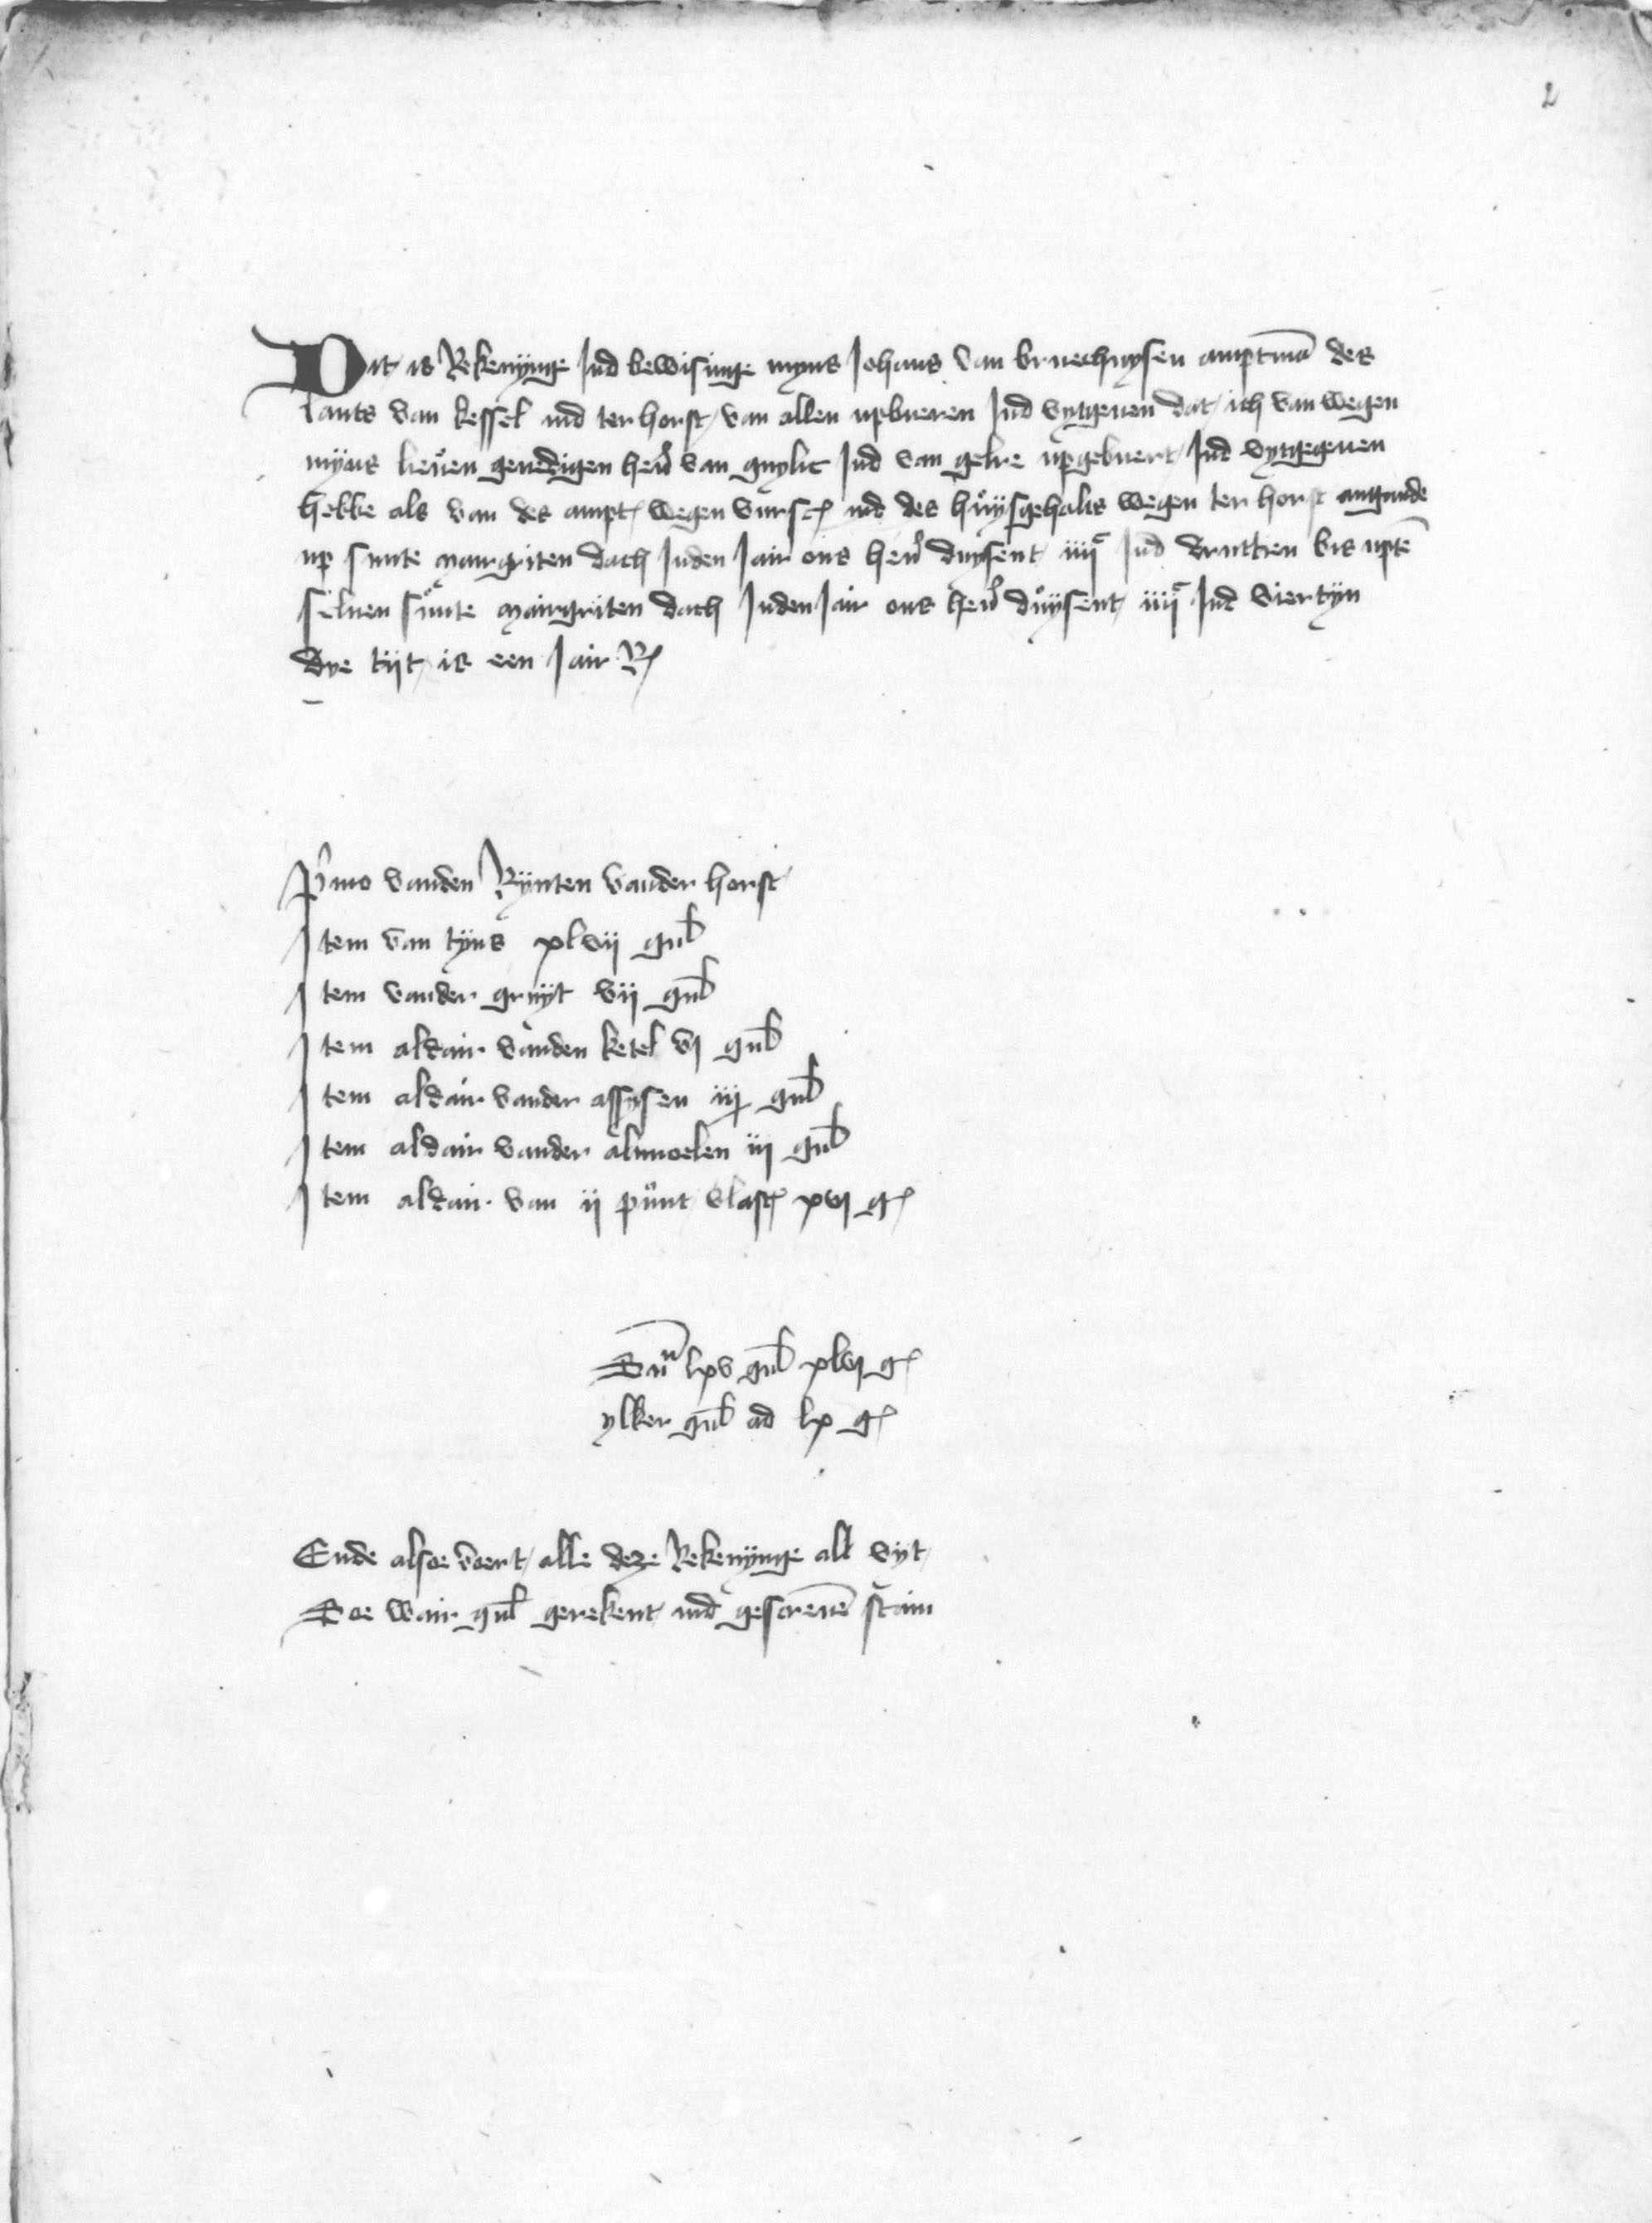 2
Dit is Rekenynge Ind bewisinge myns Johans van bruechuysen amptmā des
lants van kessel ind ter horst van allen upbueren Ind vytgeuen dat ich van wegen
myns lieuen genedigen heū van guylic Ind van gelre upgebuert Ind vytgegeuen
hebbe als van des ampt wegen vursc ind des huysgehalts wegen ter horst angaende
up sunte margriten dach Inden Jair ons heū duysent iiijc Ind druttien bis uptē
seluen sunte mairgriten dach Inden Jair ons heū duysent iiijc Ind viertyn
dye tijt is een Jair
Pimo vanden Rynten vander horst
Item van tyns xlvij gul
Item vander gruyt vij gul
Item aldair vanden ketel vj gul
Item aldair vander assysen iij gul
Item aldair vander almoelen iij gul
Item aldair van ij punt vlasc xvj g
Sum lxv gul xlvj g
ylker gul ad lx g
Ende alsoe voert alle deze Rekenynge all vyt
Soe wair gul gerekent ind gescreuē stain